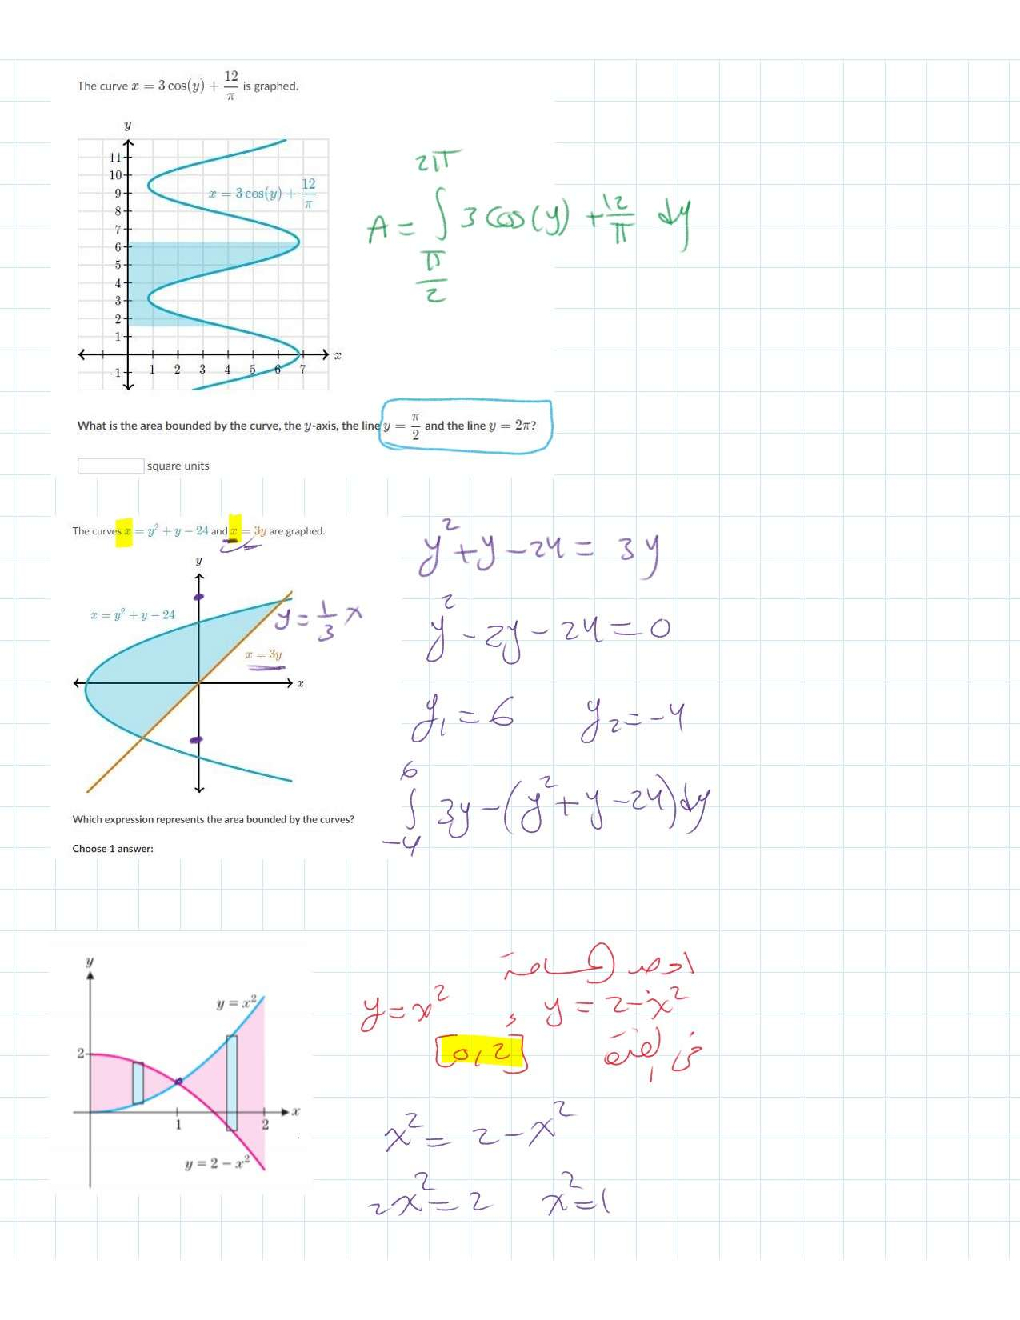 The curve x = 3 cos(y) + 12/π is graphed.
y
11
10
9
8
7
6
5
4
3
2
1
-1
1 2 3 4 5 6 7
x
x = 3 cos(y) + 12/π
A = ∫ 2π π/2 3 cos(y) + 12/π dy
What is the area bounded by the curve, the y-axis, the line y = π/2 and the line y = 2π?
square units
The curves x = y² + y − 24 and x = 3y are graphed.
y
x = y² + y − 24
y = 1/3 x
x = 3y
x
y² + y − 24 = 3y
y² − 2y − 24 = 0
y₁ = 6 y₂ = −4
∫ 6 −4 3y − (y² + y − 24) dy
Which expression represents the area bounded by the curves?
Choose 1 answer:
y
y = x²
2
1
2
x
y = 2 − x²
المساحة
y = x² , y = 2 − x²
في الفترة [0, 2]
x² = 2 − x²
2x² = 2 x² = 1